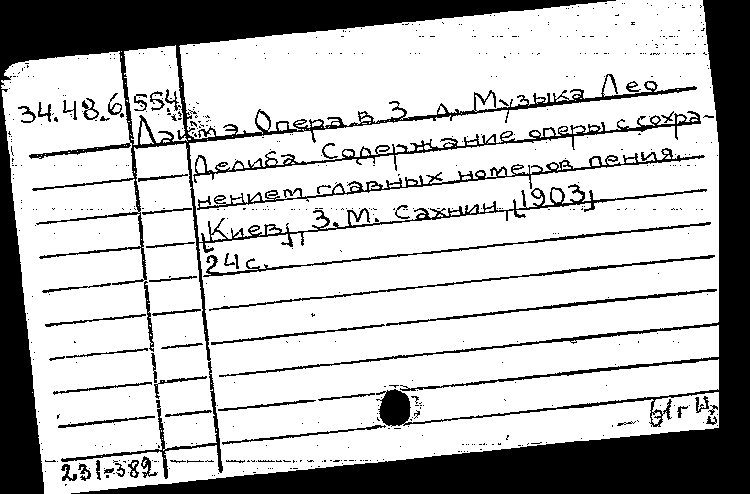 34.48.6 554
Лакмэ. Опера в 3 д. Музыка Лео
Делиба. Содержание оперы с сохра-
нением главных номеров пения.
[Киев], З.М. Сахнин, [1903]
24 с.
231-382